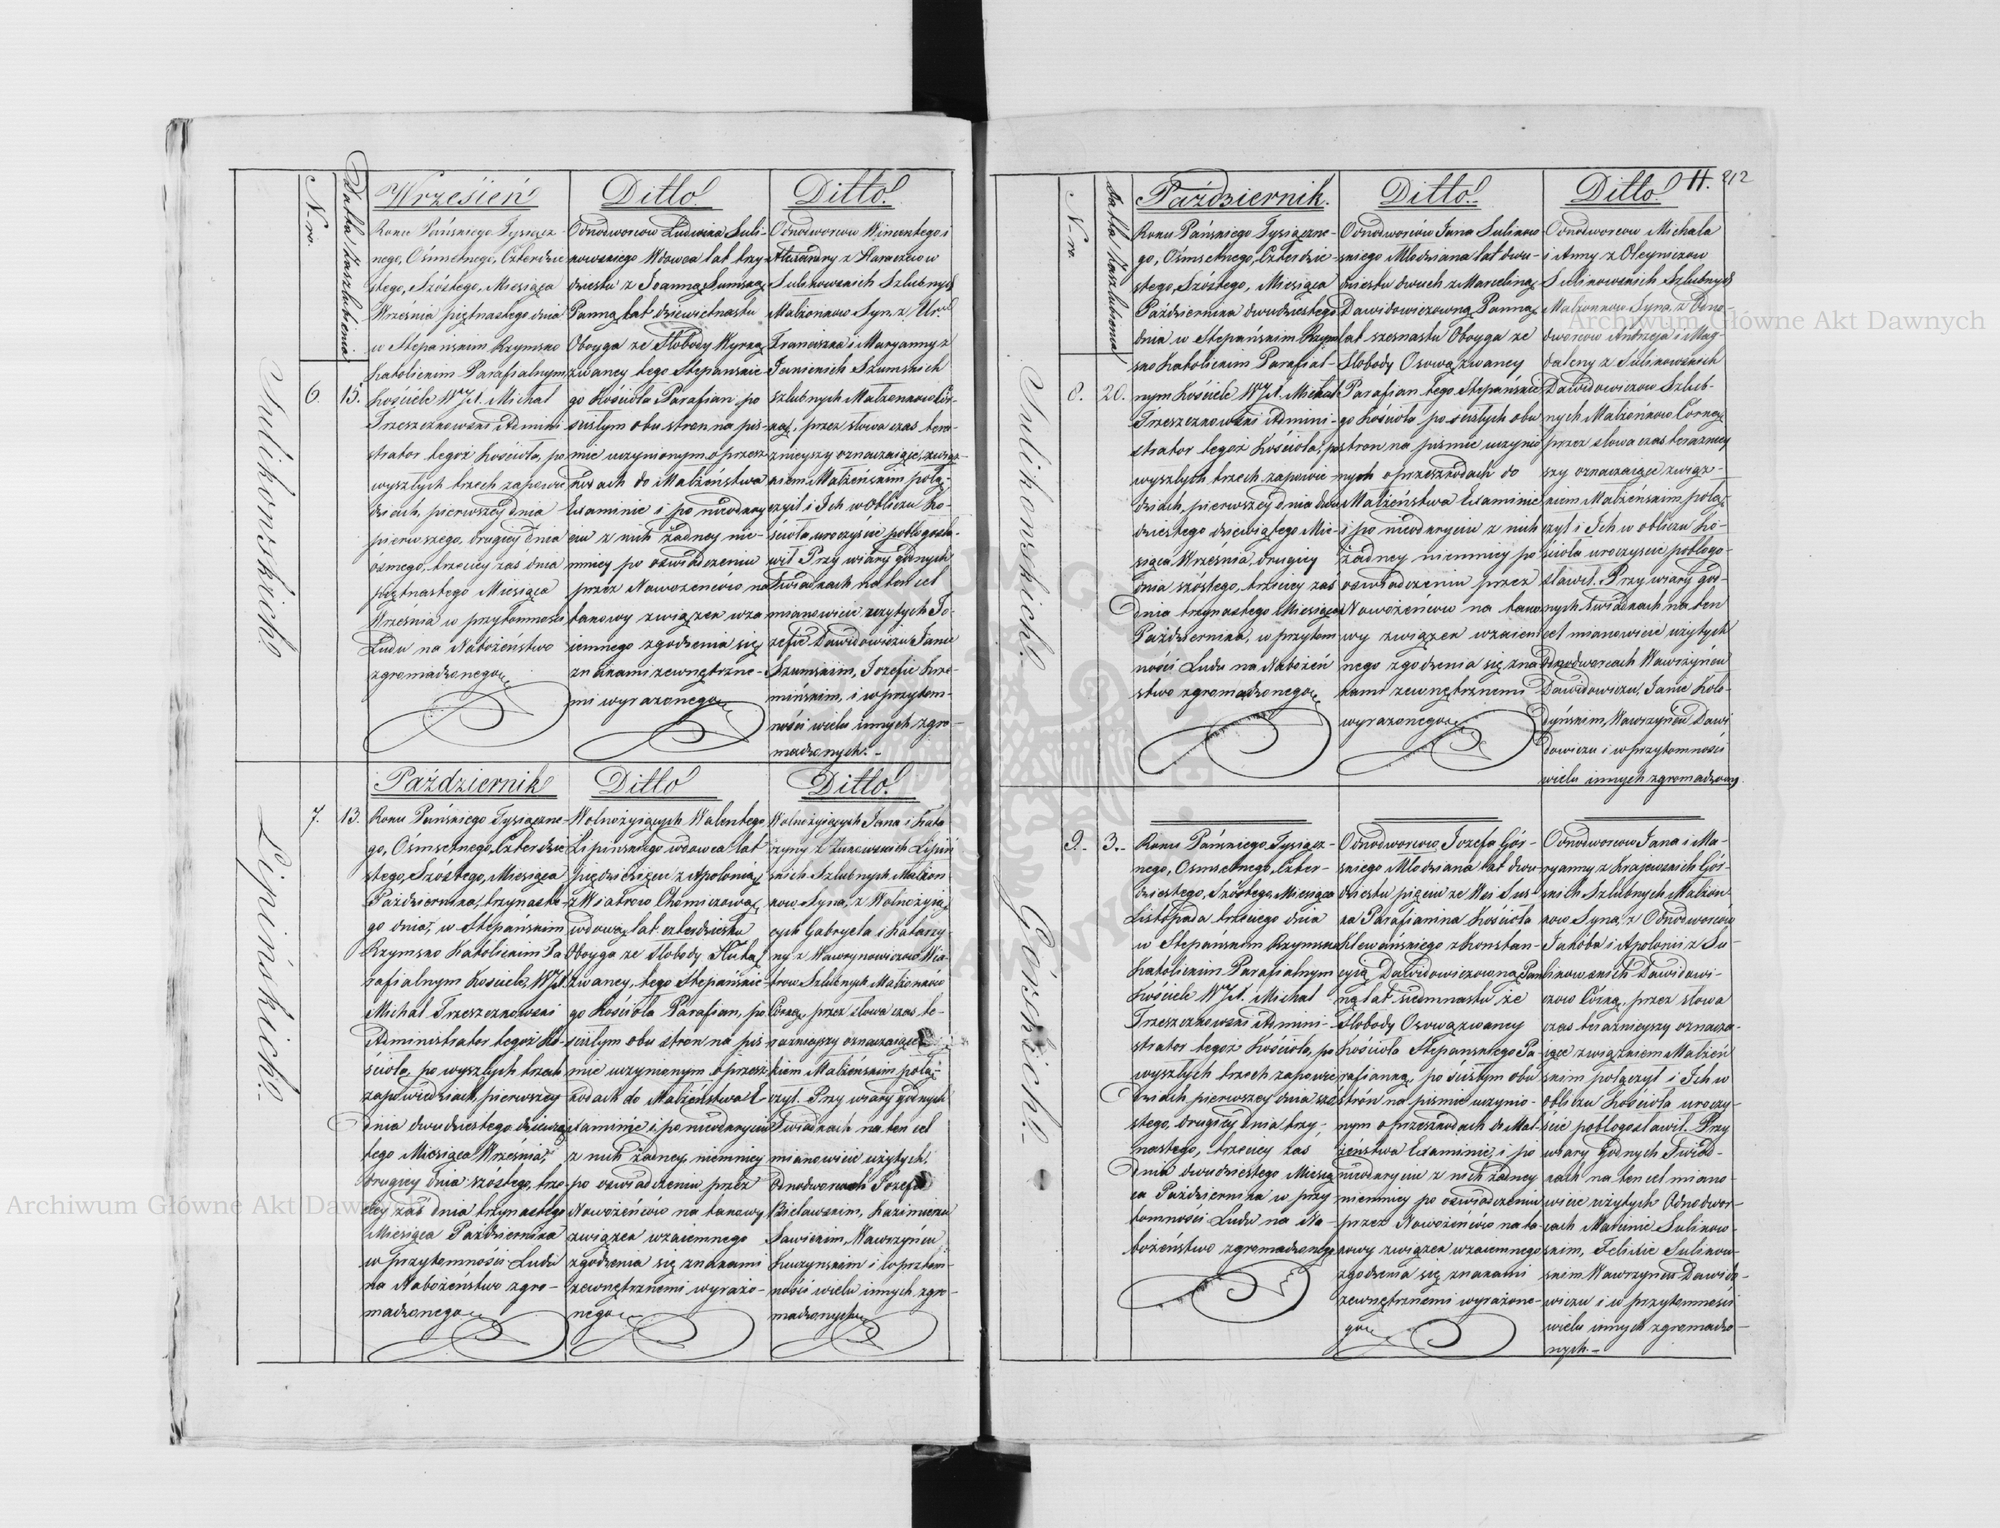 Wrzesień
Ditto
Ditto.
N-ro.
Datta Zaszlubienia
Sulikowskich
6.
15.
Roku Pańskiego Tysiącz-
nego, Ośmsetnego, Czterdzie
stego, Szóstego, Miesiąca
Września piętnastego dnia
w Stepańskim Rzymsko
Katolickim Parafialnym
Kościele WJX. Michał
Trzeszczkowski Admini
strator tegoż Kościoła, po
wyszłych trzech zapowie
dziach, pierwszey dnia
pierwszego, drugiey dnia
ósmego, trzeciey zaś dnia
piętnastego Miesiąca
Września w przytomności
Ludu na Nabożeństwo
zgromadzonego
Odnodworców Ludwika Suli-
kowskiego Wdowca lat trzy
dziestu z Joanną Szumską
Panną lat dziewietnastu
Oboyga ze Słobody Wyrką
zwaney tego Stepańskie
go Kościoła Parafian po
ścisłym obu stron na piś-
mie uczynionym o przesz
kodach do Małżeństwa
Examinie i po nieodkry
ciu z nich żadney nie-
mniey po oświadczeniu
przez Nowożeńców na
tanowy związek wza
iemnego zgodzenia się
znakami zewnętrzne-
mi wyrażonego
Odnodworców Wincentego i
Alexandry z Karaczów
Sulikowskich Szlubnych
Małżonków Syna z Ur.
Franciszka i Maryanny z
Janickich Szumskich
szlubnych Małżonków Cór-
ką, przez słowa czas tera-
źnieyszy oznaczaiące, związ-
kiem Małżeńskim połą-
czył i Ich w Obliczu Ko-
ścioła uroczyście pobłogosła-
wił Przy wiary godnych
Świadkach na ten cel
mianowicie użytych Jó-
zefie Dawidowiczu Janie
Szumskim, Jozefie Krze
mińskim, i w przytom-
ności wielu innych zgro-
madzonych.-
Październik
Ditto
Ditto.
Lipińskich.
7.
13.
Roku Pańskiego Tysiączne-
go, Ośmsetnego, Czterdzie
stego, Szóstego, Miesiąca
Października, trzynaste-
go dnia, w Stepańskim
Rzymsko Katolickim Pa
rafialnym Kościele, WJX.
Michał Trzeszczkowski
Administrator tegoż Ko-
ścioła, po wyszłych trzech
zapowiedziach, pierwszey
dnia dwudziestego dziewią
tego Miesiąca Września,
drugiey dnia szóstego, trze
ciey zaś dnia trzynastego
Miesiąca Października
w przytomności Ludu
na Nabożeństwo zgro-
madzonego
Wolnożyiących Walentego
Lipińskiego wdowca lat
pięćdziesiąt z Apolonią
z Wiatrów
wdową lat czterdziestu
Oboyga ze Słobody Hutą
zwaney, tego Stepańskie
go Kościoła Parafian, po
ścisłym obu stron na piś
mie uczynionym o przesz
kodach do Małżeństwa E-
xaminie i po nieodkryciu
z nich żadney, niemniey
po oświadczeniu przez
Nowożeńców na tanowy
związek wzaiemnego
zgodzenia się znakami
zewnętrznemi wyrażo-
nego
Wolnożyiących Jana i Kata
rzyny z Żukowskich Lipiń
skich Szlubnych Małżon
ków Syna, z Wolnożyią
cych Gabryela i Katarzy-
ny z Wawrynowiczów Wia-
trów Szlubnych Małżonków
Córką, przez słowa czas te-
raźnieyszy oznaczaiące
kiem Małżeńskim połą-
czył. Przy wiary godnych
Świadkach na ten cel
mianowicie użytych,
Odnodworcach Jozefie
Bielawskim, Kazimierzu
Sawickim, Wawrzyńcu
Kuczyńskim i w przytom-
ności wielu innych zgro-
madzonych
Październik.
Ditto.
Ditto.
H. 212
N-ro.
Datta Zaszlubienia
Sulikowskich.
8.
20.
Roku Pańskiego Tysiączne-
go, Ośmsetnego, Czterdzie
stego, Szóstego, Miesiąca
Października dwudziestego
dnia w Stepańskim Rzym
sko Katolickim Parafial-
nym Kościele WJX. Michał
Trzeszczkowski Admini-
strator tegoż Kościoła, po
wyszłych trzech zapowie
dziach, pierwszey dnia dwu
dziestego dziewiątego Mie-
siąca Września, drugiey
dnia szóstego, trzeciey zaś
dnia trzynastego Miesiąca
Października, w przytom
ności Ludu na Nabożeń
stwo zgromadzonego
Odnodworców Jana Sulikow
skiego Młodziana lat dwu-
dziestu dwuch z Marcelliną
Dawidowiczowną Panną
lat szesnastu Oboyga ze
Słobody Osową zwaney
Parafian tego Stepańskie
go Kościoła po ścisłych obu
stron na piśmie uczynio
nych o przeszkodach do
Małżeństwa Examinie
i po nieodkryciu z nich
żadney niemniey po
oświadczeniu przez
Nowożeńców na tano
wy związek wzaiem
nego zgodzenia się zna
kami zewnętrznemi
wyrażonego
Odnodworców Michała
i Anny z Oleyniczów
Sulikowskich Szlubnych
Małżonków Syna, z Odno-
dworców Andrzeja i Mag-
daleny z Sulikowskich
Dawidowiczów Szlub-
nych Małżonków Córką
przez słowa czas teraźniey
szy oznaczaiące związ-
kiem Małżeńskim połą
czył i Ich w obliczu Ko-
ścioła uroczyście pobłogo-
sławił. Przy wiary god-
nych Świadkach na ten
cel mianowicie użytych
Odnodworcach Wawrzyńcu
Dawidowiczu, Janie Koło-
dyńskim, Wawrzyńcu Dawi
dowiczu i w przytomności
wielu innych zgromadzonych.
Górskich.-
9.
3.-
Roku Pańskiego Tysiącz-
nego, Ośmsetnego, Czter-
dziestego, Szóstego, Miesiąca
Listopada trzeciego dnia
w Stepańskim Rzymsko
Katolickim Parafialnym
Kościele WJX. Michał
Trzeszczkowski Admini-
strator tegoż Kościoła, po
wyszłych trzech zapowie
dziach pierwszey dnia szó
stego, drugiey dnia trzy-
nastego, trzeciey zaś
dnia dwudziestego Miesią
ca Października w przy
tomności Ludu na Na-
bożeństwo zgromadzonego
Odnodworców Jozefa Gór-
skiego Młodziana lat dwu-
dziestu pięciu ze Wsi Sus
ka Parafianina Kościoła
Klewańskiego z Konstan-
cyią Dawidowiczowną Pan
ną lat siedmnastu ze
Słobody Osową zwaney
Kościoła Stepanskiego Pa-
rafianką, po ścisłym obu
stron na piśmie uczynio-
nym o przeszkodach do Mał-
żeństwa Examinie, i po
nieodkryciu z nich żadney
niemniey po oświadczeniu
przez Nowożeńców na ta-
nowy związek wzaiemnego
zgodzenia się znakami
zewnętrznemi wyrażone-
go
Odnodworców Jana i Ma-
ryanny z Krajewskich Gór-
skich Szlubnych Małżon-
ków Syna, z Odnodworców
Jakóba i Apolonii z Su-
likowskich Dawidowi-
czów Córką, przez słowa
czas teraźnieyszy oznacza-
iące związkiem Małżeń
skim połączył i Ich w
obliczu Kościoła uroczy-
ście pobłogosławił. Przy
wiary godnych Świad-
kach na ten cel miano-
wicie użytych Odnodwor-
cach Marcinie Sulikow-
skim, Felixie Sulikow-
skim Wawrzyńcu Dawido-
wiczu i w przytomności
wielu innych zgromadzo-
nych.-
Archiwum Główne Akt Dawnych
Archiwum Główne Akt Dawnych